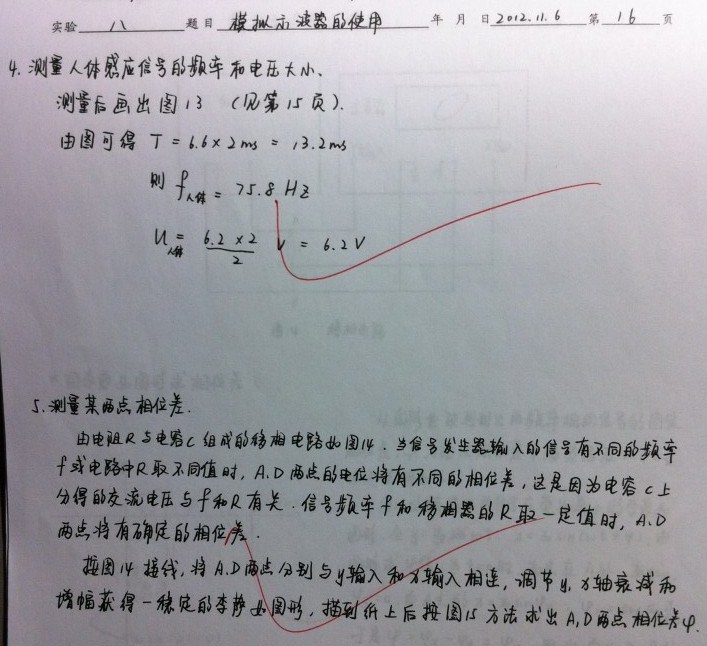 实验 八 题目 模拟示波器的使用 年 月 日 2012.11.6 第 16 页
4. 测量人体感应信号的频率和电压大小、
测量后画出图13 (见第15页).
由图可得 T = 6.6 × 2ms = 13.2ms
则 f人体 = 75.8 HZ
U人体 = 6.2 × 2 / 2 V = 6.2 V
5. 测量某两点相位差.
由电阻R与电容C组成的移相电路如图14. 当信号发生器输入的信号有不同的频率
f或电路中R取不同值时, A.D两点的电位将有不同的相位差, 这是因为电容C上
分得的交流电压与f和R有关. 信号频率f和移相器的R取一定值时, A.D
两点将有确定的相位差.
按图14接线, 将A.D两点分别与y输入和x输入相连, 调节y, x轴衰减和
增幅获得一稳定的李萨如图形, 描到纸上后按图15方法求出A,D两点相位差φ.